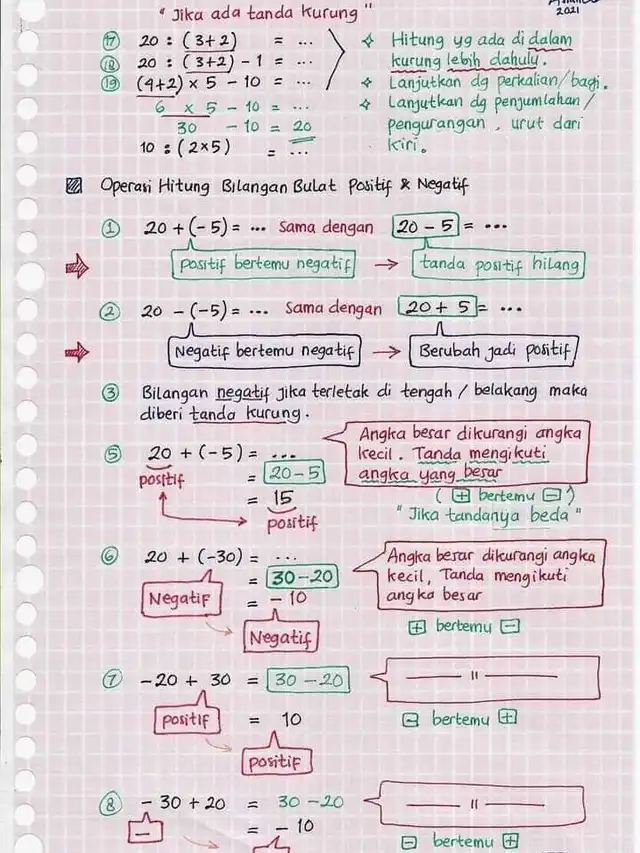 " Jika ada tanda kurung "
2021
17 20 : (3+2) = ...
18 20 : (3+2) - 1 = ...
19 (4+2) x 5 - 10 = ...
6 x 5 - 10 = ...
30 - 10 = 20
10 : (2x5) = ...
Hitung yg ada di dalam
kurung lebih dahulu.
Lanjutkan dg perkalian/bagi.
Lanjutkan dg penjumlahan/
pengurangan, urut dari
kiri.
Operasi Hitung Bilangan Bulat Positif & Negatif
1 20 + (-5) = ... Sama dengan 20 - 5 = ...
positif bertemu negatif → tanda positif hilang
2 20 - (-5) = ... Sama dengan 20 + 5 = ...
Negatif bertemu negatif → Berubah jadi positif
3 Bilangan negatif jika terletak di tengah / belakang maka
diberi tanda kurung.
5 20 + (-5) = ...
positif = 20-5
= 15
positif
Angka besar dikurangi angka
kecil. Tanda mengikuti
angka yang besar
( + bertemu - )
" Jika tandanya beda "
6 20 + (-30) = ...
= 30-20
Negatif = - 10
Negatif
Angka besar dikurangi angka
kecil, Tanda mengikuti
angka besar
+ bertemu -
7 -20 + 30 = 30 - 20
positif = 10
positif
— " —
- bertemu +
8 - 30 + 20 = 30 - 20
- = - 10
— " —
- bertemu +